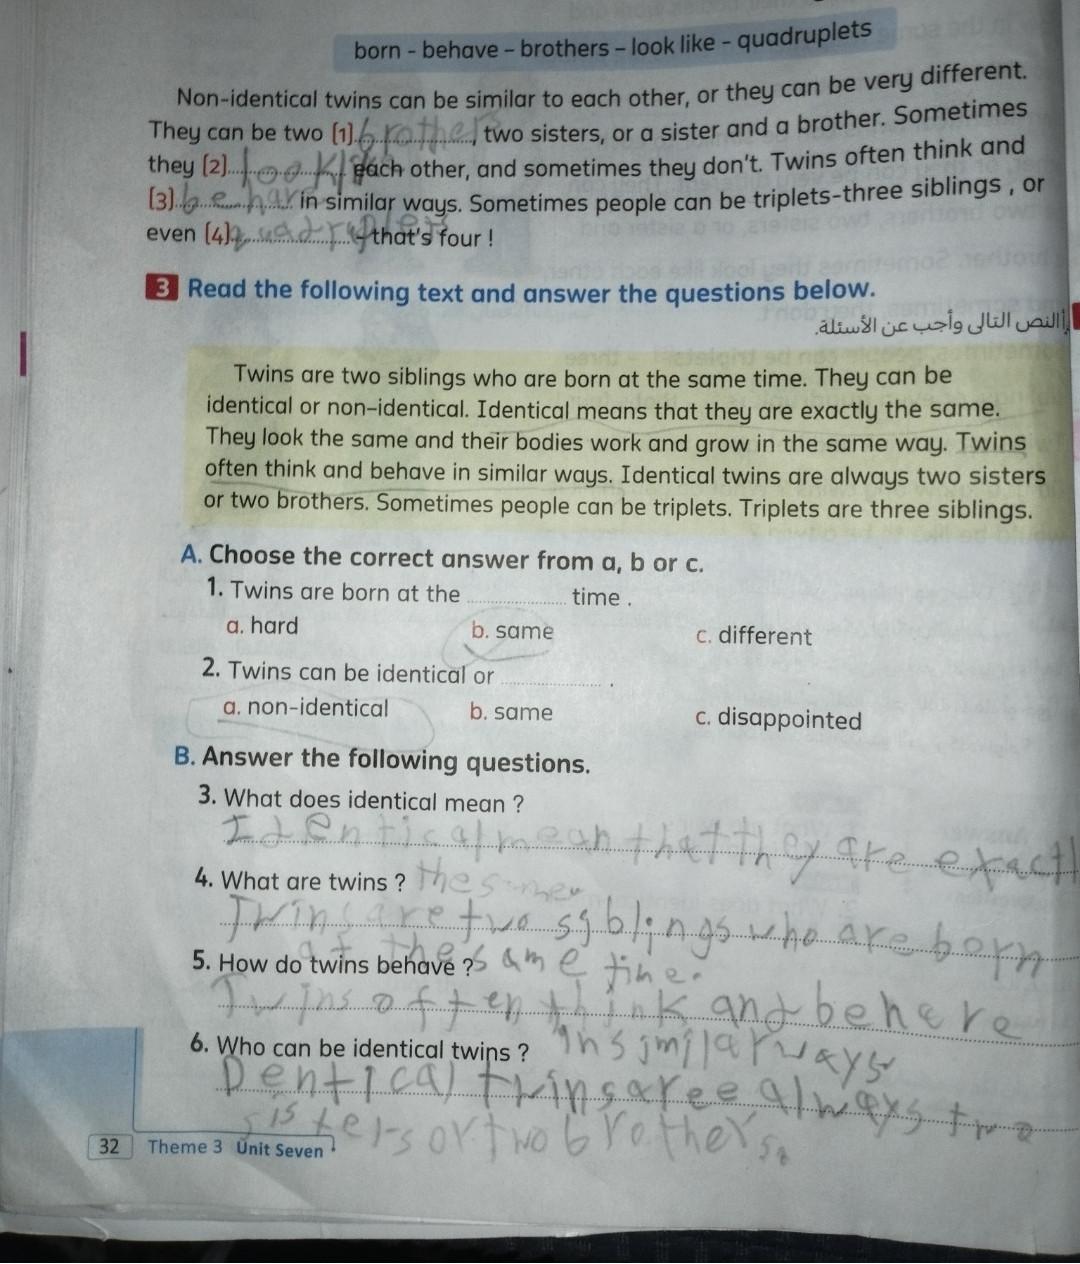 born - behave - brothers - look like - quadruplets
Non-identical twins can be similar to each other, or they can be very different.
They can be two (1) brothers, two sisters, or a sister and a brother. Sometimes
they (2) look like each other, and sometimes they don't. Twins often think and
(3) behave in similar ways. Sometimes people can be triplets-three siblings , or
even (4) quadruplet - that's four !
3 Read the following text and answer the questions below.
النص التالى وأجب عن الأسئلة.
Twins are two siblings who are born at the same time. They can be
identical or non-identical. Identical means that they are exactly the same.
They look the same and their bodies work and grow in the same way. Twins
often think and behave in similar ways. Identical twins are always two sisters
or two brothers. Sometimes people can be triplets. Triplets are three siblings.
A. Choose the correct answer from a, b or c.
1. Twins are born at the ........ time .
a. hard b. same c. different
2. Twins can be identical or ........ .
a. non-identical b. same c. disappointed
B. Answer the following questions.
3. What does identical mean ?
Identical mean that they are exactl
4. What are twins ? the same
Twins are two siblings who are born
at the same time.
5. How do twins behave ?
Twins often think and behave
6. Who can be identical twins ? in similar ways
Dentical twins aree always two
sisters or two brothers.
32 Theme 3 Unit Seven